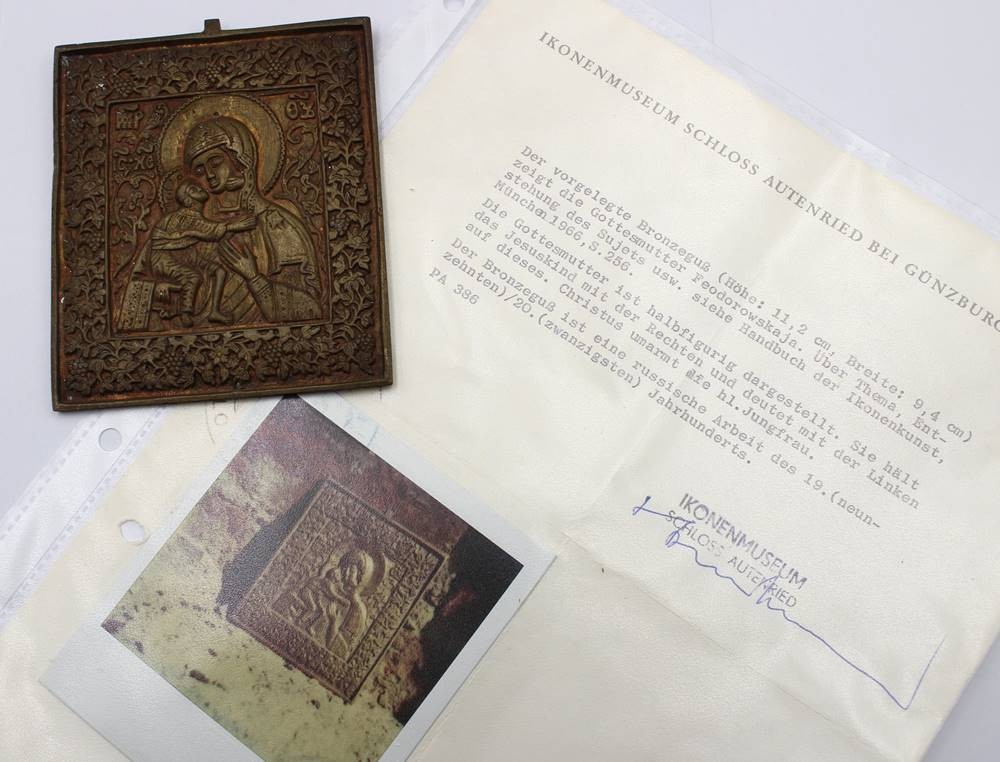 IKONENMUSEUM SCHLOSS AUTENRIED BEI GÜNZBURG
Der vorgelegte Bronzeguß (Höhe: 11,2 cm, Breite: 9,4 cm)
zeigt die Gottesmutter Feodorowskaja. Über Thema, Ent-
stehung des Sujets usw. siehe Handbuch der Ikonenkunst,
München 1966, S.256.
Die Gottesmutter ist halbfigurig dargestellt. Sie hält
das Jesuskind mit der Rechten und deutet mit der Linken
auf dieses. Christus umarmt die hl.Jungfrau.
Der Bronzeguß ist eine russische Arbeit des 19.(neun-
zehnten)/20.(zwanzigsten) Jahrhunderts.
PA 386
IKONENMUSEUM
SCHLOSS AUTENRIED